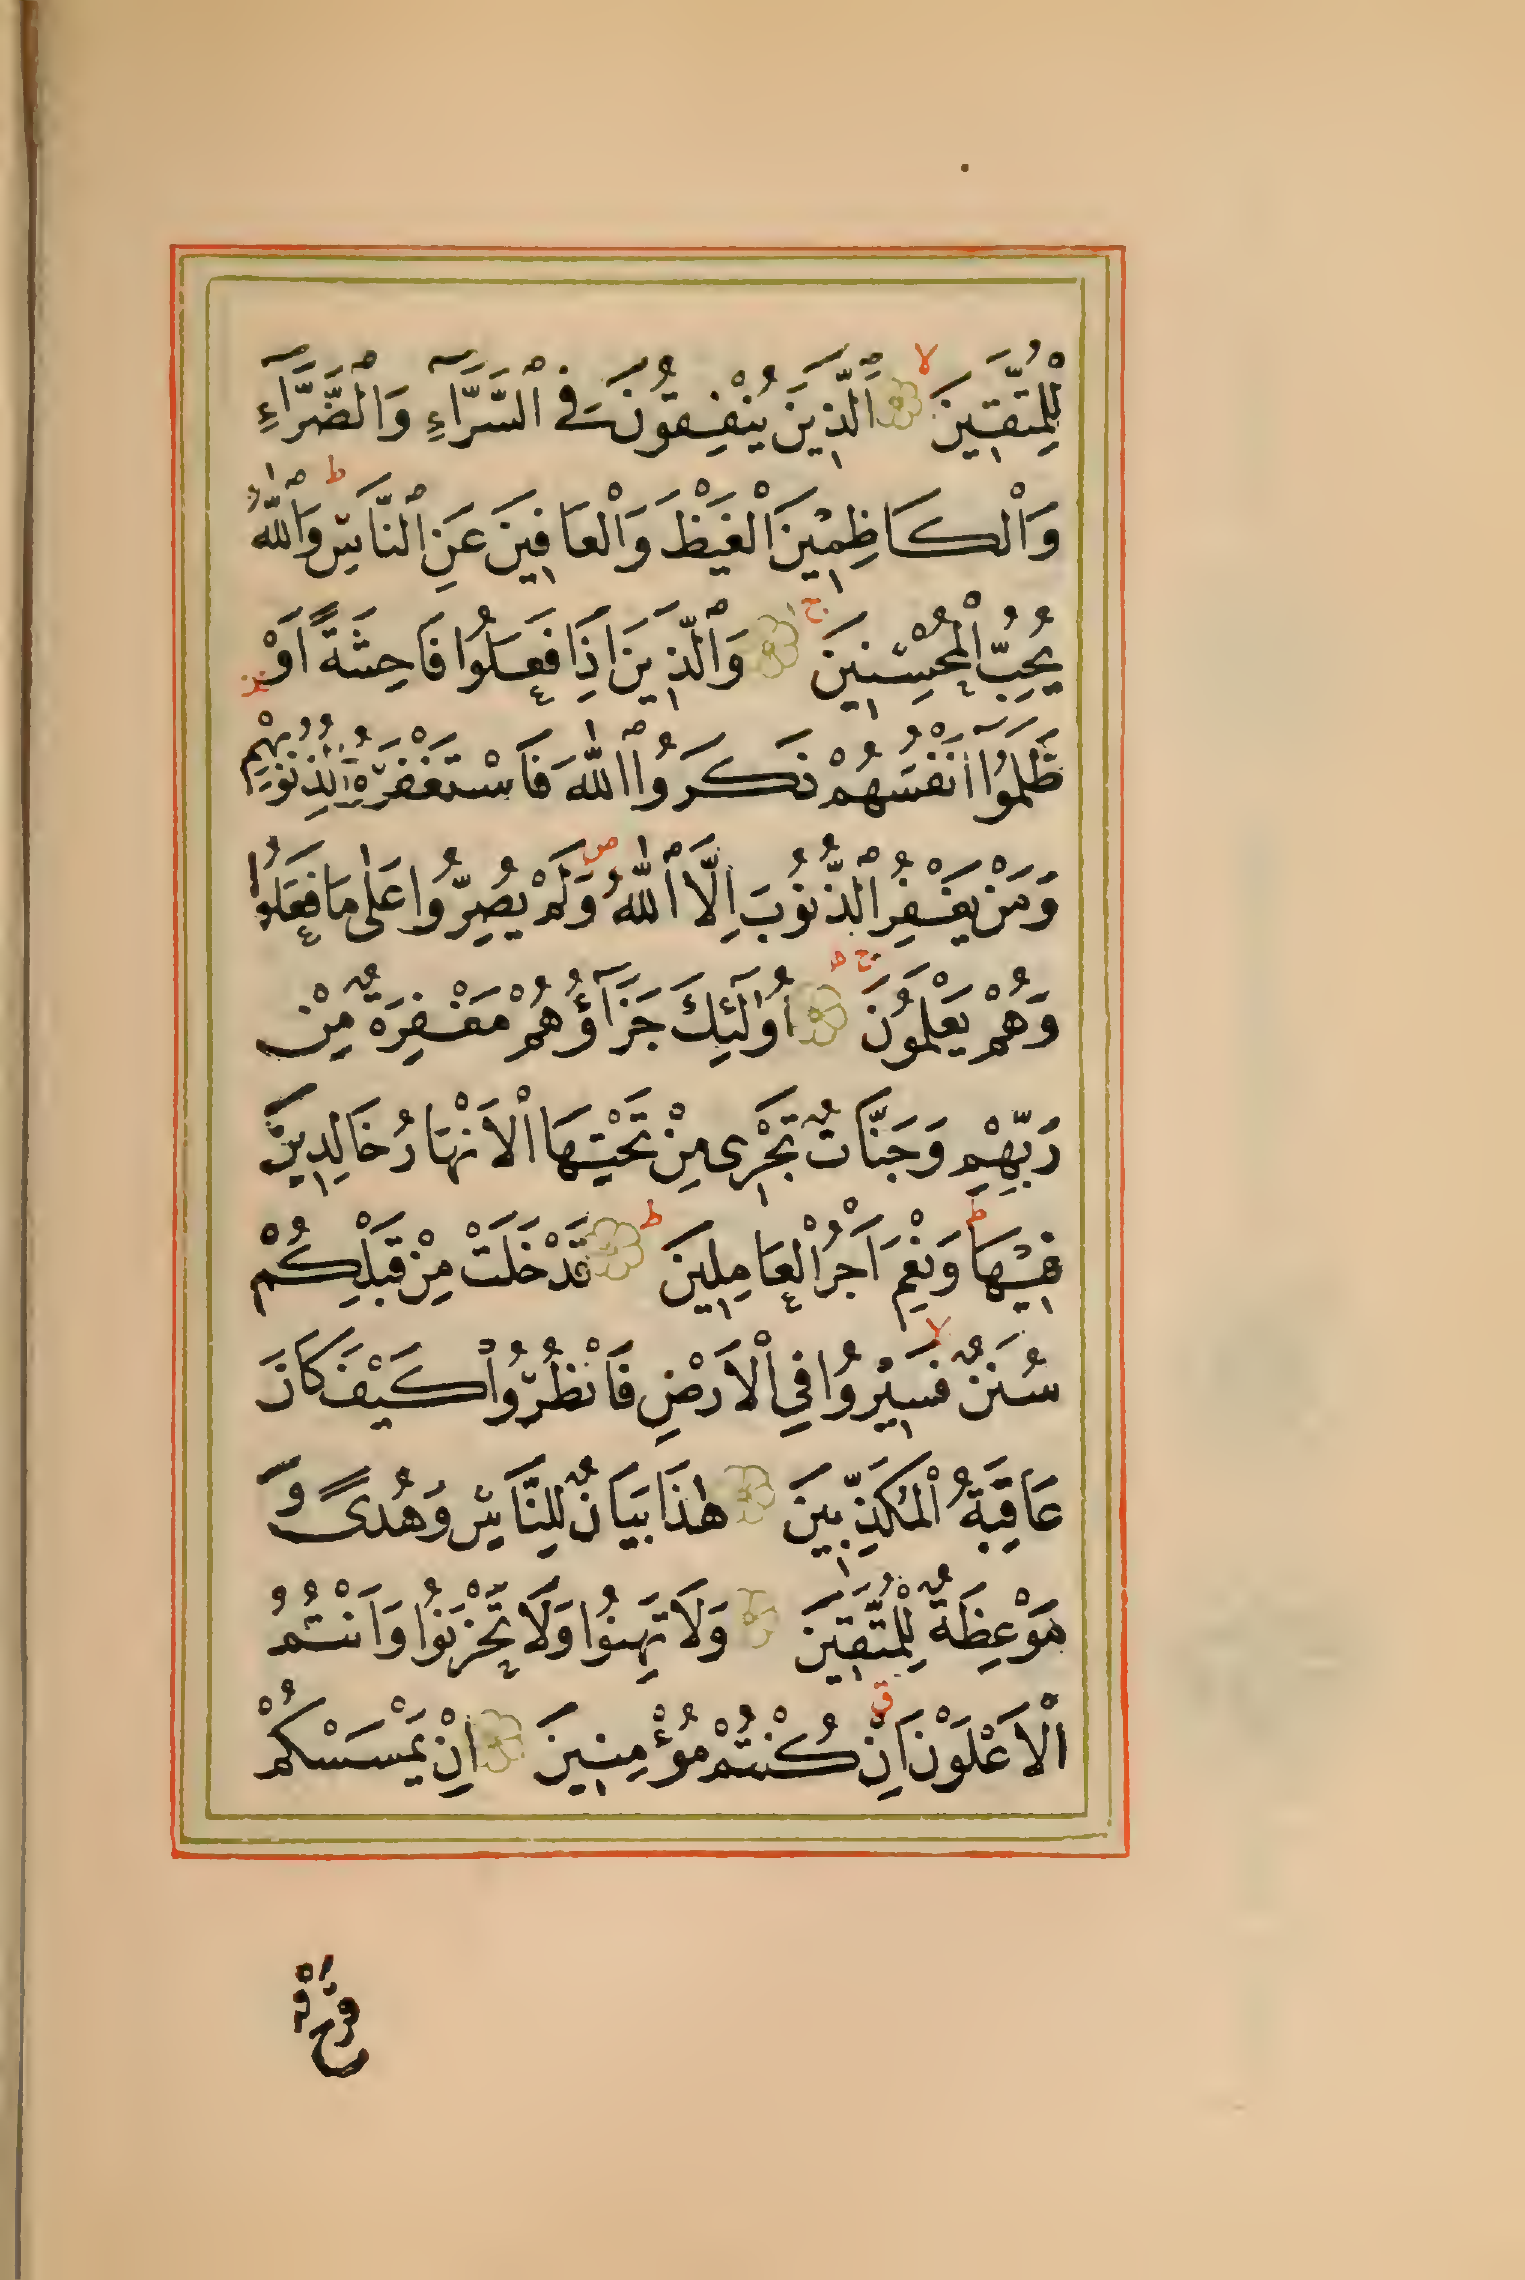 لِلْمُتَّقِينَ لا اَلَّذِينَ يُنْفِقُونَ فِى السَّرَّآءِ وَالضَّرَّآءِ
وَالْكَاظِمِينَ الْغَيْظَ وَالْعَافِينَ عَنِ النَّاسِ ط وَاللّٰهُ
يُحِبُّ الْمُحْسِنِينَ ج وَالَّذِينَ اِذَا فَعَلُوا فَاحِشَةً اَوْ
ظَلَمُوٓا اَنْفُسَهُمْ ذَكَرُوا اللّٰهَ فَاسْتَغْفَرُوا لِذُنُوبِهِمْ
وَمَنْ يَغْفِرُ الذُّنُوبَ اِلَّا اللّٰهُ ص وَلَمْ يُصِرُّوا عَلٰى مَا فَعَلُوا
وَهُمْ يَعْلَمُونَ اُولٰٓئِكَ جَزَآؤُهُمْ مَغْفِرَةٌ مِنْ
رَبِّهِمْ وَجَنَّاتٌ تَجْرِى مِنْ تَحْتِهَا الْاَنْهَارُ خَالِدِينَ
فِيهَا ط وَنِعْمَ اَجْرُ الْعَامِلِينَ ط قَدْ خَلَتْ مِنْ قَبْلِكُمْ
سُنَنٌ لا فَسِيرُوا فِي الْاَرْضِ فَانْظُرُوا كَيْفَ كَانَ
عَاقِبَةُ الْمُكَذِّبِينَ هٰذَا بَيَانٌ لِلنَّاسِ وَهُدىً وَ
مَوْعِظَةٌ لِلْمُتَّقِينَ وَلَا تَهِنُوا وَلَا تَحْزَنُوا وَاَنْتُمُ
الْاَعْلَوْنَ اِنْ كُنْتُمْ مُؤْمِنِينَ اِنْ يَمْسَسْكُمْ
قَرْحٌ